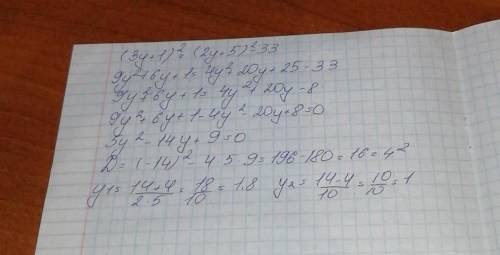 (3y+1)² = (2y+5)²-33
9y²+6y+1 = 4y²+20y+25-33
9y²+6y+1 = 4y²+20y-8
9y²+6y+1-4y²-20y+8=0
5y²-14y+9=0
D=(-14)²-4·5·9=196-180=16=4²
y1=(14+4)/(2·5)=18/10=1.8 y2=(14-4)/10=10/10=1